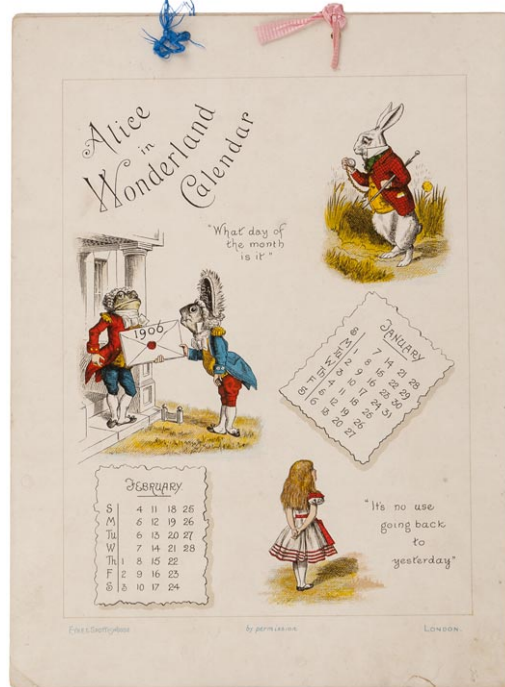 Alice
in
Wonderland
Calendar
"What day of
the month
is it"
1906
JANUARY
S 7 14 21 28
M 1 8 15 22 29
Tu 2 9 16 23 30
W 3 10 17 24 31
Th 4 11 18 25
F 5 12 19 26
S 6 13 20 27
FEBRUARY
S 4 11 18 25
M 5 12 19 26
Tu 6 13 20 27
W 7 14 21 28
Th 1 8 15 22
F 2 9 16 23
S 3 10 17 24
"It's no use
going back
to
yesterday"
Eyre & Spottiswoode by permission LONDON.